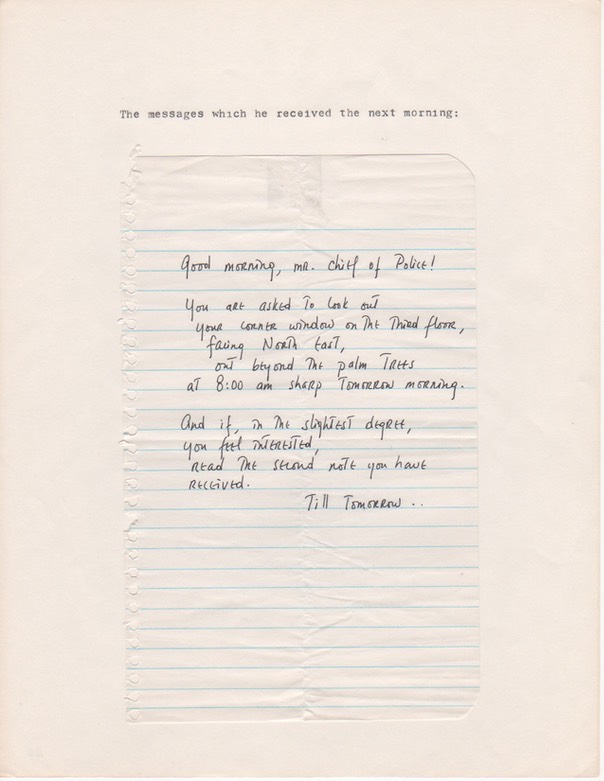 The messages which he received the next morning:
Good morning, mr. chief of Police!
You are asked to look out
your corner window on the third floor,
facing North East,
out beyond the palm trees
at 8:00 am sharp tomorrow morning.
And if, in the slightest degree,
you feel interested,
read the second note you have
received.
Till tomorrow ..